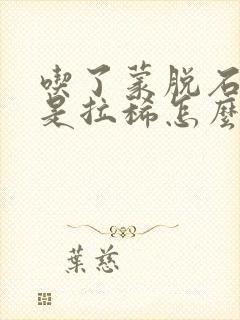 喫了蒙脱石
是拉稀怎麼
葉慈